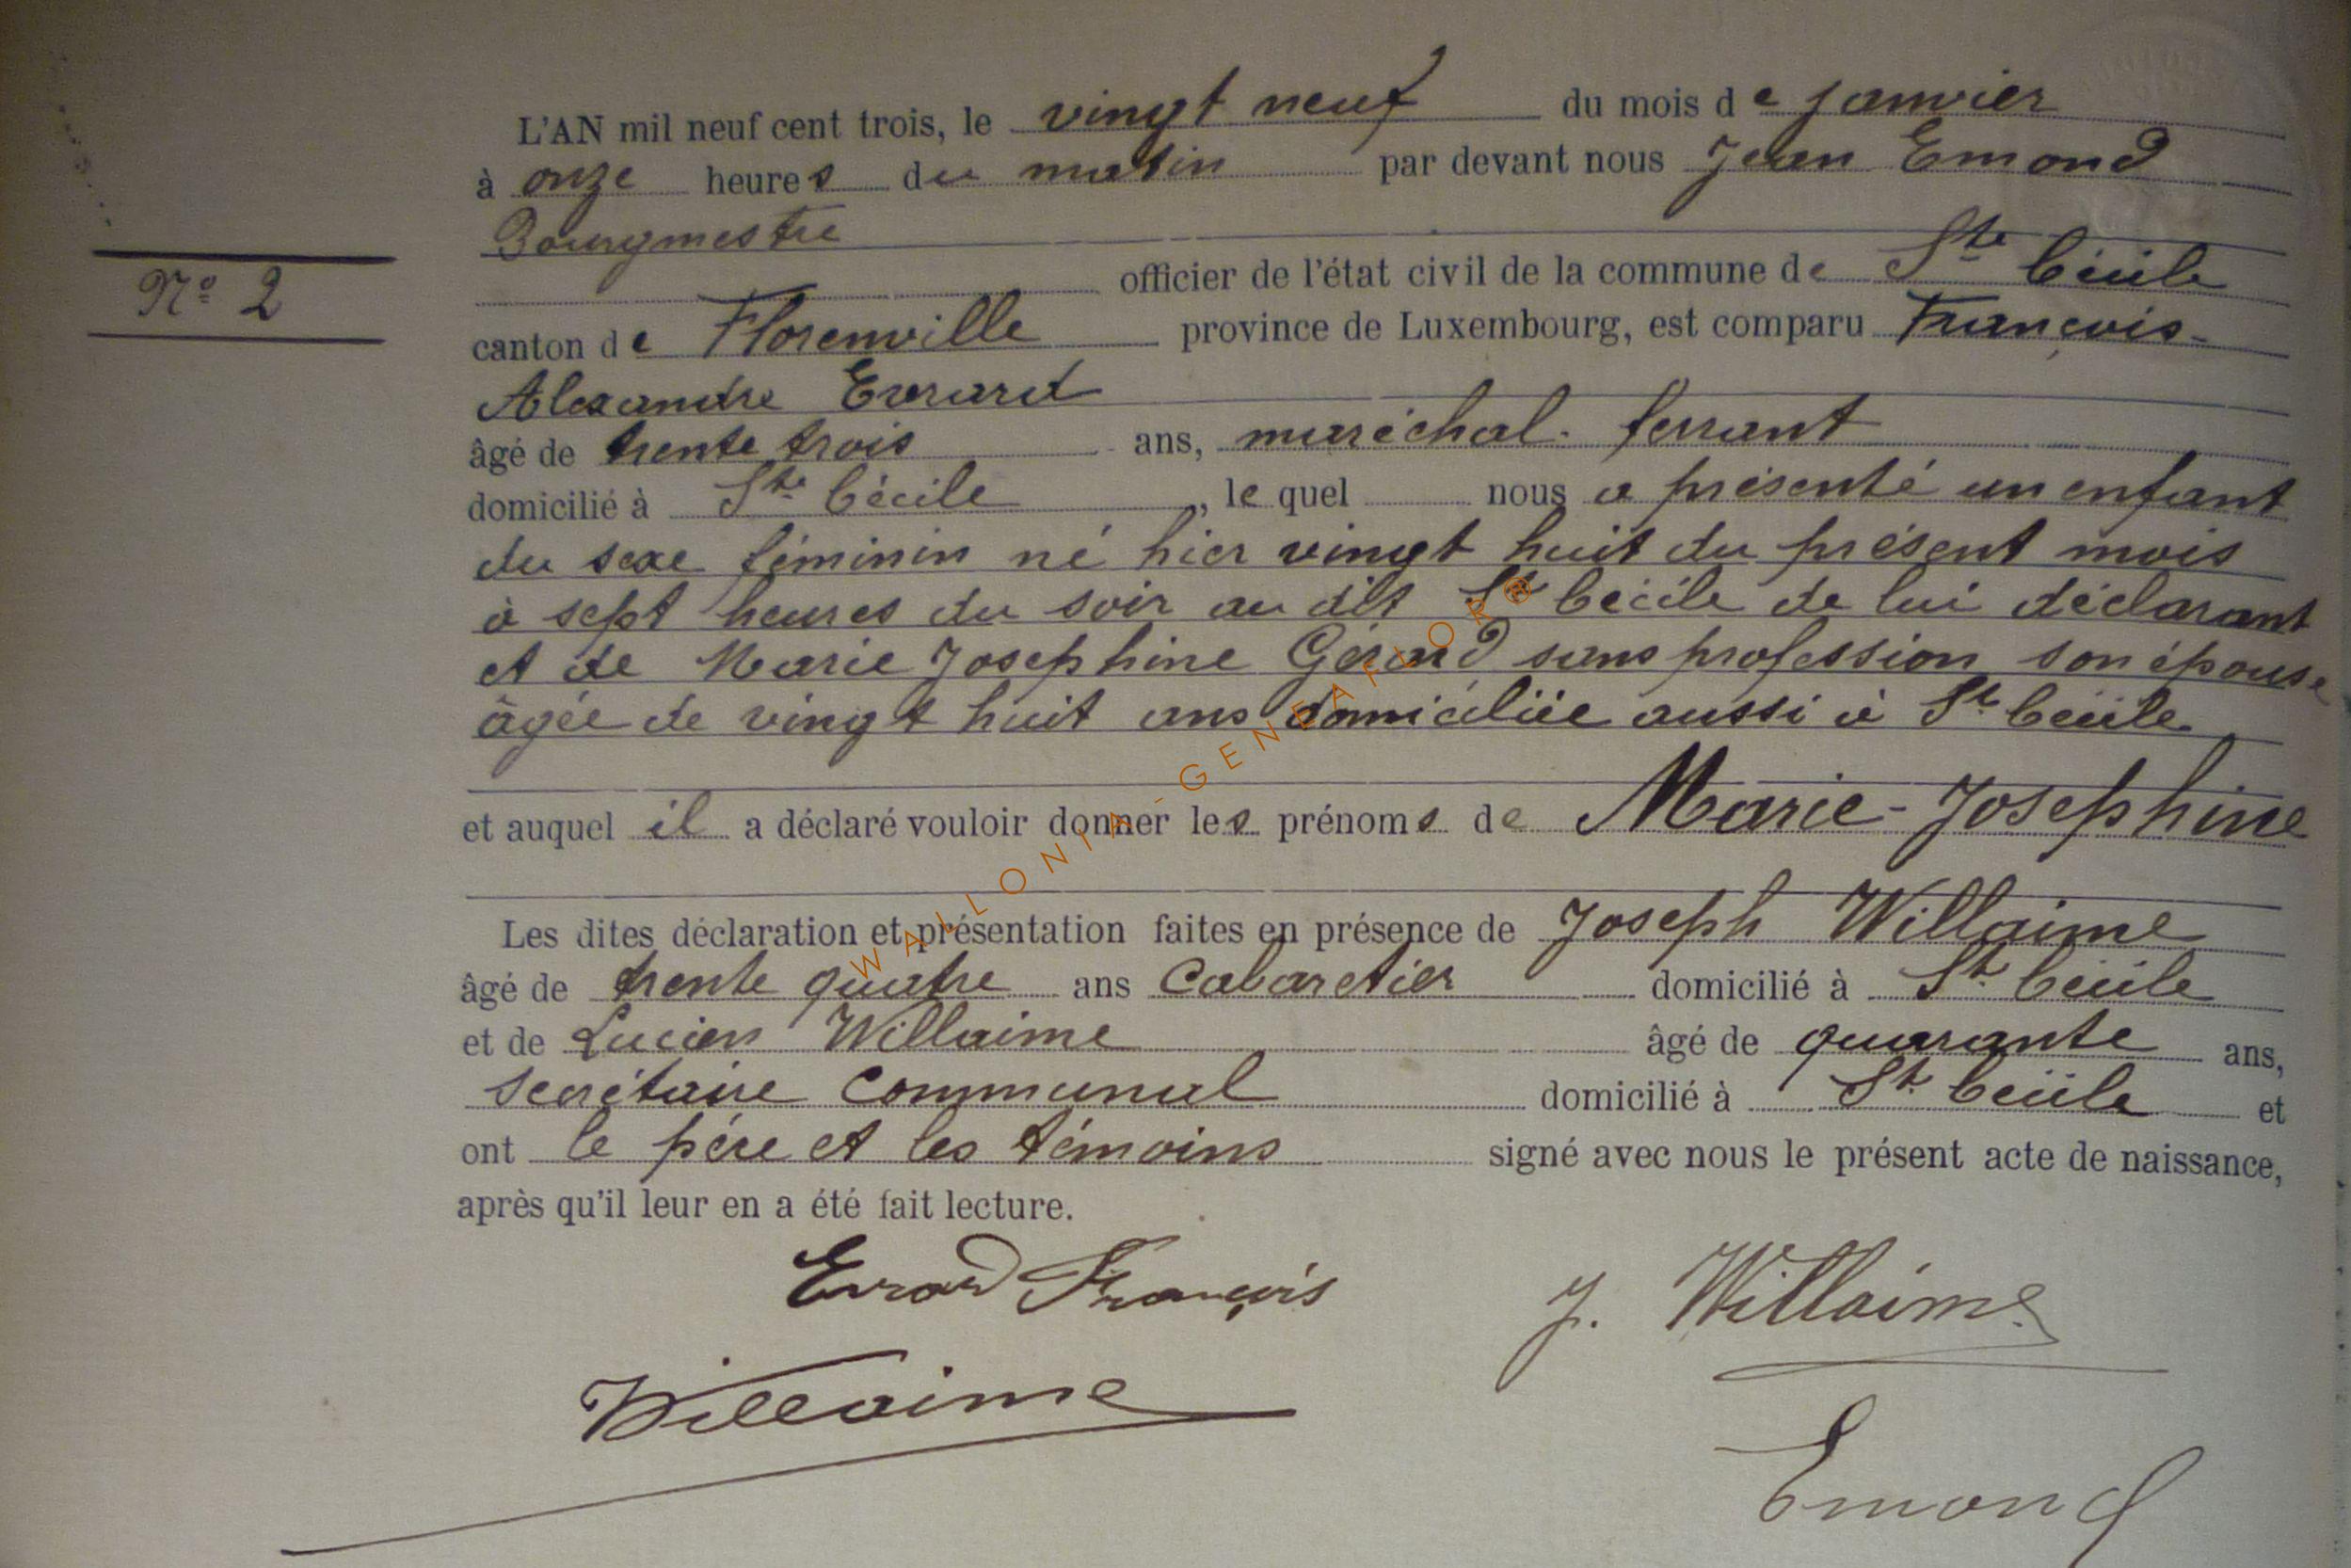 L'AN mil neuf cent trois, le vingt neuf du mois de janvier
à onze heures du matin par devant nous Jean Emond
Bourgmestre
officier de l'état civil de la commune de Ste Cécile
N° 2
canton de Florenville province de Luxembourg, est comparu François-
Alexandre Evrard
âgé de trente trois ans, maréchal-ferrant
domicilié à Ste Cécile, le quel nous a présenté un enfant
du sexe féminin né hier vingt huit du présent mois
à sept heures du soir au dit Ste Cécile de lui déclarant
et de Marie Josephine Gérard sans profession son épouse
âgée de vingt huit ans domiciliée aussi à Ste Cécile
et auquel il a déclaré vouloir donner les prénoms de Marie-Josephine
Les dites déclaration et présentation faites en présence de Joseph Willaime
âgé de trente quatre ans Cabaretier domicilié à Ste Cécile
et de Lucien Willaime âgé de quarante ans,
secrétaire communal domicilié à Ste Cécile et
ont le père et les témoins signé avec nous le présent acte de naissance,
après qu'il leur en a été fait lecture.
Evrard François
J. Willaime
Willaime
Emond
WALLONIA-GENEAFLOR®